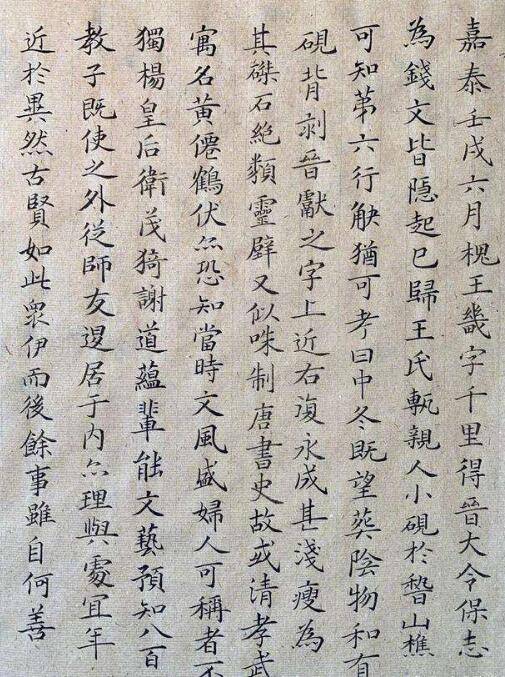 嘉泰壬戌六月槐王畿字千里得晉大令保志
為錢文皆隱起已歸王氏甎親人小硯於稽山樵
可知第六行缺猶可考曰中冬既望葬陰物和有
硯背剥晉獻之字上近右復永成甚淺瘦為
其磔石絶類靈壁又似咮制唐書史故或清孝武
寓名黄僊鶴伏尓恐知當時文風盛婦人可稱者不
獨楊皇后衛茂猗謝道蘊輩能文藝預知八百
教子既使之外從師友退居于内尓理與處宜年
近於異然古賢如此衆伊而後餘事雖自何善